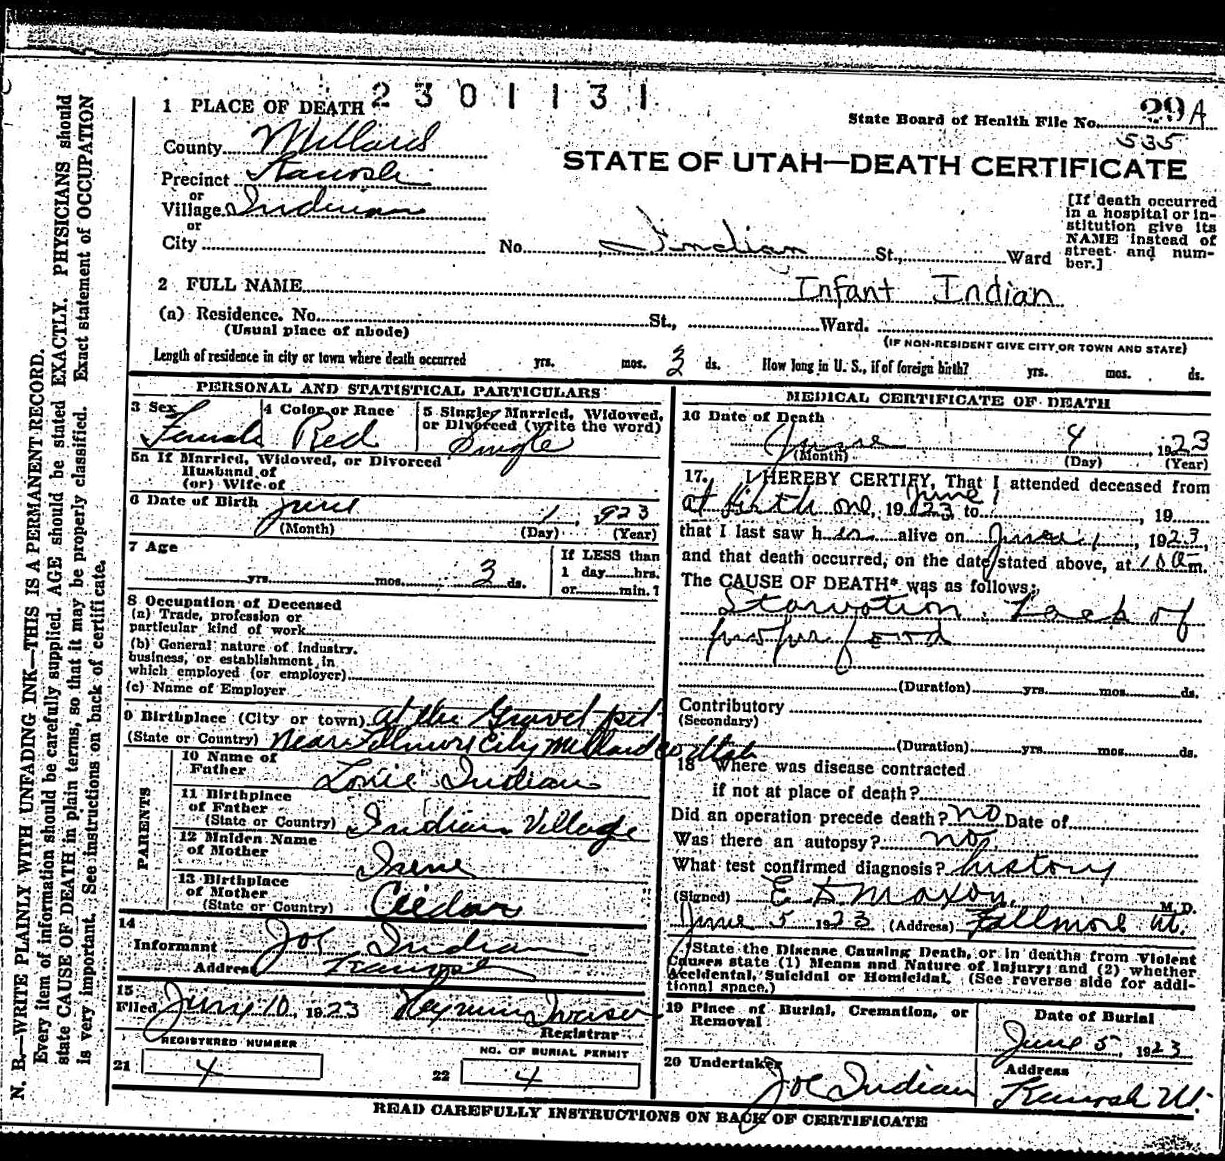 2301131
1 PLACE OF DEATH
State Board of Health File No. 29A
535
County Millard
STATE OF UTAH—DEATH CERTIFICATE
Precinct Kanosh
or
Village Indian
or
City
No. Indian St., Ward
[If death occurred
in a hospital or in-
stitution give its
NAME instead of
street and num-
ber.]
2 FULL NAME Infant Indian
(a) Residence. No. St., Ward.
(Usual place of abode)
(IF NON-RESIDENT GIVE CITY OR TOWN AND STATE)
Length of residence in city or town where death occurred yrs. mos. 3 ds. How long in U. S., if of foreign birth? yrs. mos. ds.
PERSONAL AND STATISTICAL PARTICULARS
3 Sex Female
4 Color or Race Red
5 Single, Married, Widowed,
or Divorced (write the word)
Single
5a If Married, Widowed, or Divorced
Husband of
(or) Wife of
6 Date of Birth June 1, 923
(Month) (Day) (Year)
7 Age
yrs. mos. 3 ds.
If LESS than
1 day hrs.
or min.?
8 Occupation of Deceased
(a) Trade, profession or
particular kind of work
(b) General nature of industry.
business, or establishment in
which employed (or employer)
(c) Name of Employer
9 Birthplace (City or town) at the Gravel pit
(State or Country) Near Fillmore City Millard co Utah
PARENTS
10 Name of
Father Indian
11 Birthplace
of Father
(State or Country) Indian Village
12 Maiden Name
of Mother Irene
13 Birthplace
of Mother
(State or Country) Ciedar
14
Informant Joe Indian
Address Kanosh
15
Filed June 10, 1923
Registrar
REGISTERED NUMBER
21 4
NO. OF BURIAL PERMIT
22 4
MEDICAL CERTIFICATE OF DEATH
16 Date of Death
June 4, 1923
(Month) (Day) (Year)
17. I HEREBY CERTIFY, That I attended deceased from
at birth June 1, 1923 to , 19
that I last saw her alive on June 1, 1923,
and that death occurred, on the date stated above, at 10 am.
The CAUSE OF DEATH* was as follows:
Starvation. Lack of
proper food
(Duration) yrs. mos. ds.
Contributory
(Secondary)
(Duration) yrs. mos. ds.
18 Where was disease contracted
if not at place of death?
Did an operation precede death? no Date of
Was there an autopsy? no
What test confirmed diagnosis? history
(Signed) E D Maxon, M. D.
June 5 1923 (Address) Fillmore Ut.
*State the Disease Causing Death, or in deaths from Violent
Causes state (1) Means and Nature of Injury; and (2) whether
Accidental, Suicidal or Homicidal. (See reverse side for addi-
tional space.)
19 Place of Burial, Cremation, or
Removal
Date of Burial
June 5, 1923
20 Undertaker
Joe Indian
Address
Kanosh Ut.
READ CAREFULLY INSTRUCTIONS ON BACK OF CERTIFICATE
N. B.—WRITE PLAINLY WITH UNFADING INK—THIS IS A PERMANENT RECORD.
Every item of information should be carefully supplied. AGE should be stated EXACTLY. PHYSICIANS should
state CAUSE OF DEATH in plain terms, so that it may be properly classified. Exact statement of OCCUPATION
is very important. See instructions on back of certificate.